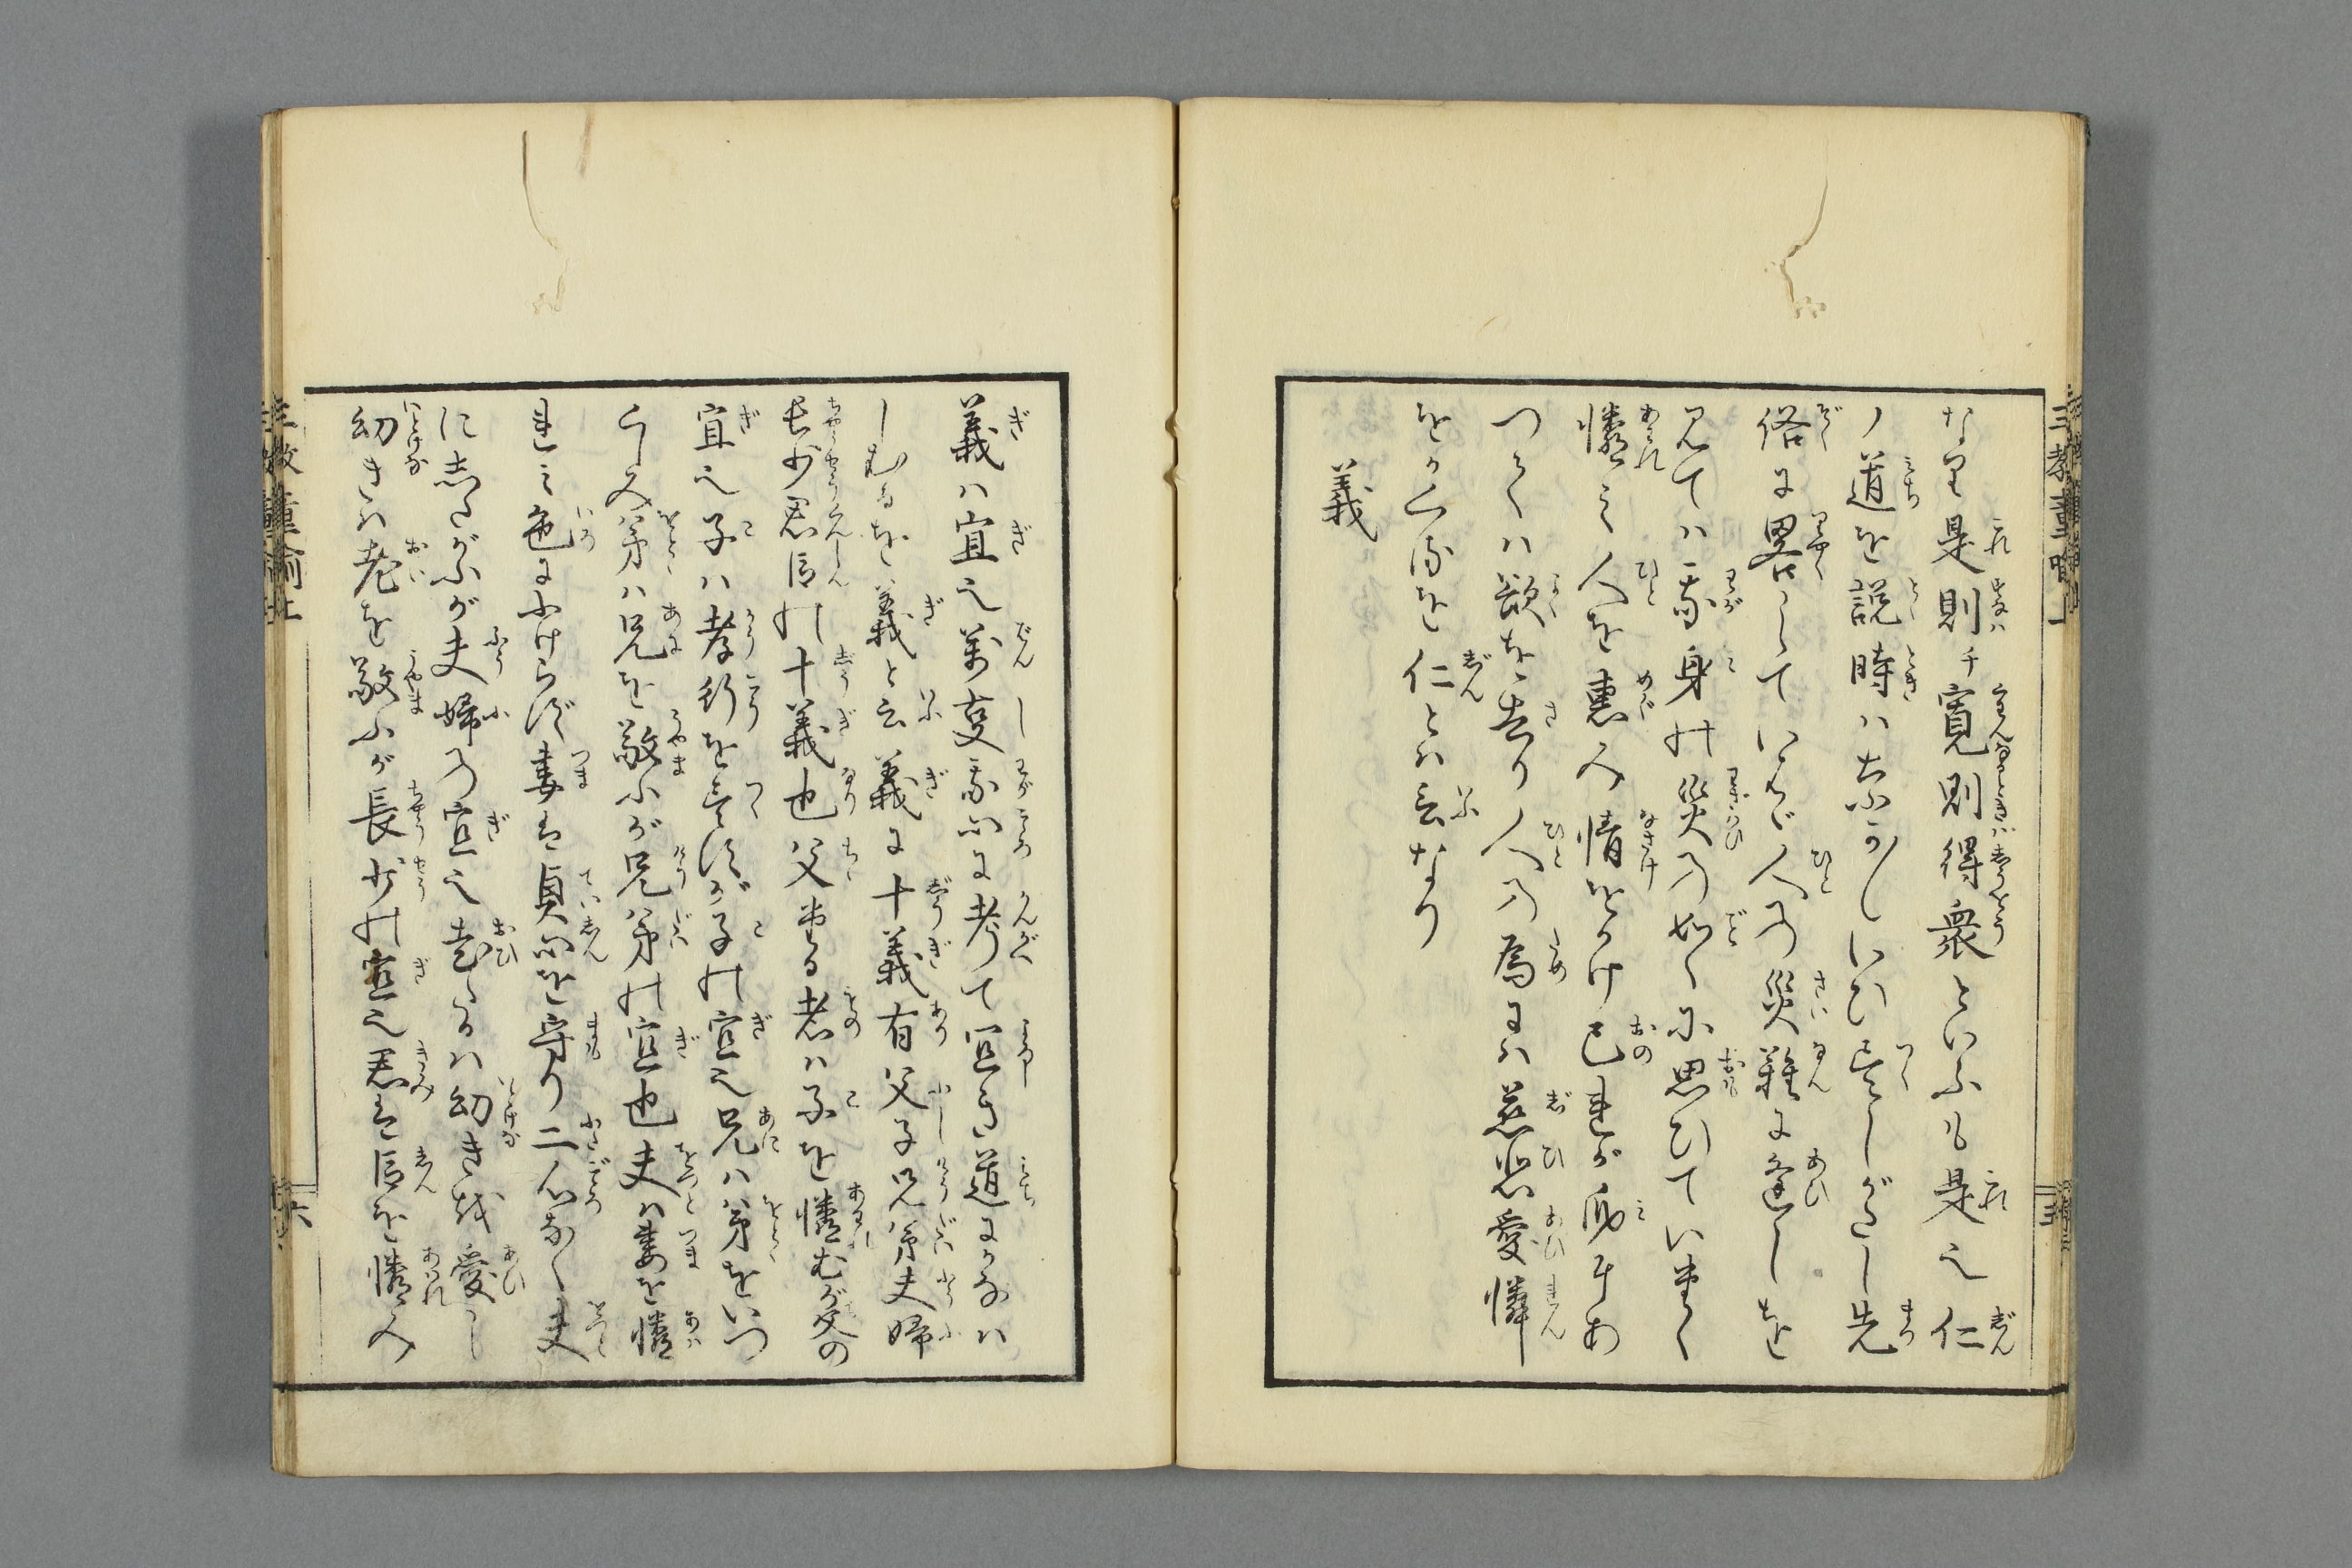 なり是則チ寛則得衆といふも是也仁
ノ道を説時ハあふかたしいひ尽しがたし先
俗に畧していはゞ人の災難に逢しを
見てハ我身の災の如くに思ひていたく
憐ミ人を恵み情をかけ己れが身にあ
つくハ欲を去り人の為にハ慈悲愛憐
をかくるを仁とハ云なり
義
義ハ宜也萬変我心に考て宜き道にかなハ
しむるを義と云義に十義有父子兄弟夫婦
長少君臣の十義也父たる者ハ子を憐むが父の
宜也子ハ孝行を尽すが子の宜也兄ハ弟をいつ
くしみ弟ハ兄を敬ふが兄弟の宜也夫ハ妻を憐
れミ色にふけらず妻は貞心を守り二心なく夫
にしたがふが夫婦の宜也老たるハ幼きを愛し
幼きハ老を敬ふが長少の宜也君は臣を憐み
三教童喩
三教童喩上
五
六